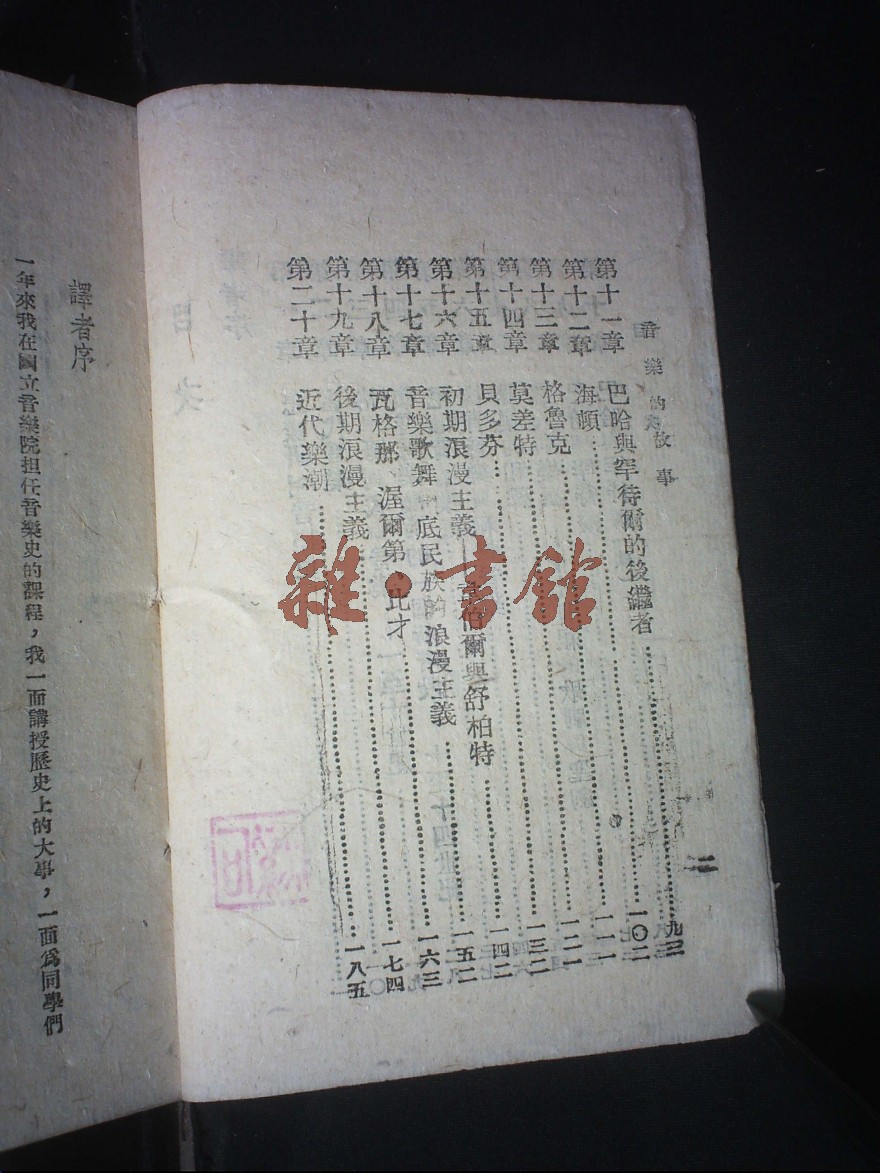 音樂的故事
二
第十一章 巴哈與罕待爾的後繼者……九三
第十二章 海頓……一〇二
第十三章 格魯克……一一一
第十四章 莫差特……一二一
第十五章 貝多芬……一三二
第十六章 初期浪漫主義 伯爾與舒柏特……一四二
第十七章 音樂歌舞 底民族的浪漫主義……一五二
第十八章 瓦格那、渥爾第、比才……一六三
第十九章 後期浪漫主義……一七四
第二十章 近代樂潮……一八五
譯者序
一年來我在國立音樂院担任音樂史的課程，我一面講授歷史上的大事，一面爲同學們
雜·書館